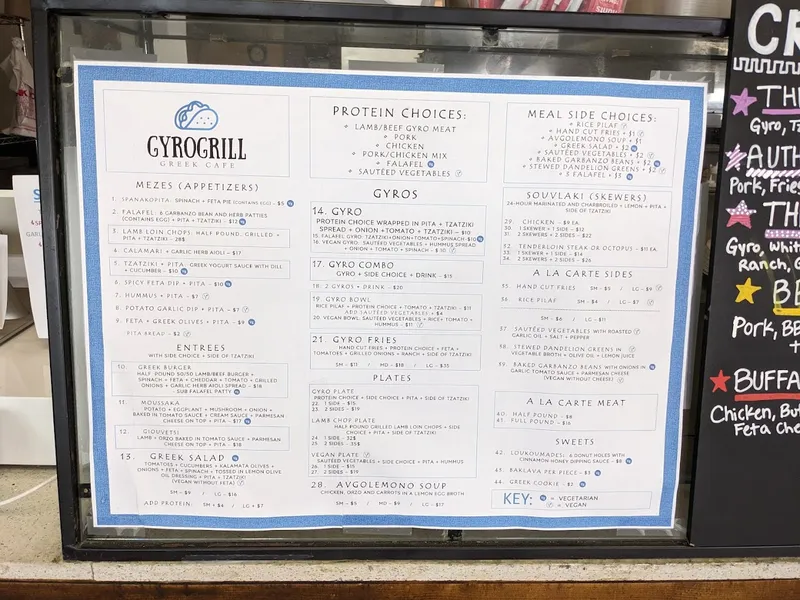 GYROGRILL
GREEK CAFE
MEZES (APPETIZERS)
1. SPANAKOPITA: SPINACH + FETA PIE (CONTAINS EGG) - $5
2. FALAFEL: 6 GARBANZO BEAN AND HERB PATTIES
(CONTAINS EGG) + PITA + TZATZIKI - $12
3. LAMB LOIN CHOPS: HALF POUND, GRILLED +
PITA + TZATZIKI - 28$
4. CALAMARI + GARLIC HERB AIOLI - $17
5. TZATZIKI + PITA: GREEK YOGURT SAUCE WITH DILL
+ CUCUMBER - $10
6. SPICY FETA DIP + PITA - $10
7. HUMMUS + PITA - $7
8. POTATO GARLIC DIP + PITA - $7
9. FETA + GREEK OLIVES + PITA - $9
PITA BREAD - $2
ENTREES
WITH SIDE CHOICE + SIDE OF TZATZIKI
10. GREEK BURGER
HALF-POUND 50/50 LAMB/BEEF BURGER +
SPINACH + FETA + CHEDDAR + TOMATO + GRILLED
ONIONS + GARLIC HERB AIOLI SPREAD - $18
SUB FALAFEL PATTY
11. MOUSSAKA
POTATO + EGGPLANT + MUSHROOM + ONION +
BAKED IN TOMATO SAUCE + CREAM SAUCE + PARMESAN
CHEESE ON TOP + PITA - $17
12. GIOUVETSI
LAMB + ORZO BAKED IN TOMATO SAUCE + PARMESAN
CHEESE ON TOP + PITA - $18
13. GREEK SALAD
TOMATOES + CUCUMBERS + KALAMATA OLIVES +
ONIONS + FETA + SPINACH + TOSSED IN LEMON OLIVE
OIL DRESSING + PITA + TZATZIKI
(VEGAN WITHOUT FETA)
SM - $9 / LG - $16
ADD PROTEIN: SM + $4 / LG + $7
PROTEIN CHOICES:
LAMB/BEEF GYRO MEAT
PORK
CHICKEN
PORK/CHICKEN MIX
FALAFEL
SAUTÉED VEGETABLES
GYROS
14. GYRO
PROTEIN CHOICE WRAPPED IN PITA + TZATZIKI
SPREAD + ONION + TOMATO + TZATZIKI - $10
15. FALAFEL GYRO: TZATZIKI+ONION+TOMATO+SPINACH-$10
16. VEGAN GYRO: SAUTÉED VEGETABLES + HUMMUS SPREAD
+ ONION + TOMATO + SPINACH - $10
17. GYRO COMBO
GYRO + SIDE CHOICE + DRINK - $15
18. 2 GYROS + DRINK - $20
19. GYRO BOWL
RICE PILAF + PROTEIN CHOICE + TOMATO + TZATZIKI - $11
ADD SAUTEED VEGETABLES + $4
20. VEGAN BOWL: SAUTEED VEGETABLES + RICE+ TOMATO +
HUMMUS - $11
21. GYRO FRIES
HAND CUT FRIES + PROTEIN CHOICE + FETA +
TOMATOES + GRILLED ONIONS + RANCH + SIDE OF TZATZIKI
SM - $11 / MD - $18 / LG - $35
PLATES
GYRO PLATE
PROTEIN CHOICE + SIDE CHOICE + PITA + SIDE OF TZATZIKI
22. 1 SIDE - $15
23. 2 SIDES - $19
LAMB CHOP PLATE
HALF POUND GRILLED LAMB LOIN CHOPS + SIDE
CHOICE + PITA + SIDE OF TZATZIKI
24. 1 SIDE - 32$
25. 2 SIDES - 35$
VEGAN PLATE
SAUTEED VEGETABLES + SIDE CHOICE + PITA + HUMMUS
26. 1 SIDE - $15
27. 2 SIDES - $19
28. AVGOLEMONO SOUP
CHICKEN, ORZO AND CARROTS IN A LEMON EGG BROTH
SM - $5 / MD - $9 / LG - $17
MEAL SIDE CHOICES:
RICE PILAF
HAND CUT FRIES + $1
AVGOLEMONO SOUP + $1
GREEK SALAD + $2
SAUTÉED VEGETABLES + $2
BAKED GARBANZO BEANS + $2
STEWED DANDELION GREENS + $2
3 FALAFEL + $3
SOUVLAKI (SKEWERS)
24-HOUR MARINATED AND CHARBROILED + LEMON + PITA +
SIDE OF TZATZIKI
29. CHICKEN - $9 EA.
30. 1 SKEWER + 1 SIDE - $12
31. 2 SKEWERS + 2 SIDES - $22
32. TENDERLOIN STEAK OR OCTOPUS - $11 EA.
33. 1 SKEWER + 1 SIDE - $14
34. 2 SKEWERS + 2 SIDES - $26
A LA CARTE SIDES
35. HAND CUT FRIES SM - $5 / LG - $9
36. RICE PILAF SM - $4 / LG - $7
SM - $6 / LG - $11
37. SAUTÉED VEGETABLES WITH ROASTED
GARLIC OIL + SALT + PEPPER
38. STEWED DANDELION GREENS IN
VEGETABLE BROTH + OLIVE OIL + LEMON JUICE
39. BAKED GARBANZO BEANS WITH ONIONS IN
GARLIC TOMATO SAUCE + PARMESAN CHEESE
(VEGAN WITHOUT CHEESE)
A LA CARTE MEAT
40. HALF POUND - $8
41. FULL POUND - $16
SWEETS
42. LOUKOUMADES: 6 DONUT HOLES WITH
CINNAMON HONEY DIPPING SAUCE - $6
43. BAKLAVA PER PIECE - $3
44. GREEK COOKIE - $2
KEY: = VEGETARIAN
= VEGAN
CR
TH
Gyro, T
AUTH
Pork, Fries
TH
Gyro, Whit
Ranch, G
BE
Pork, BB
+
BUFFA
Chicken, Buf
Feta Che